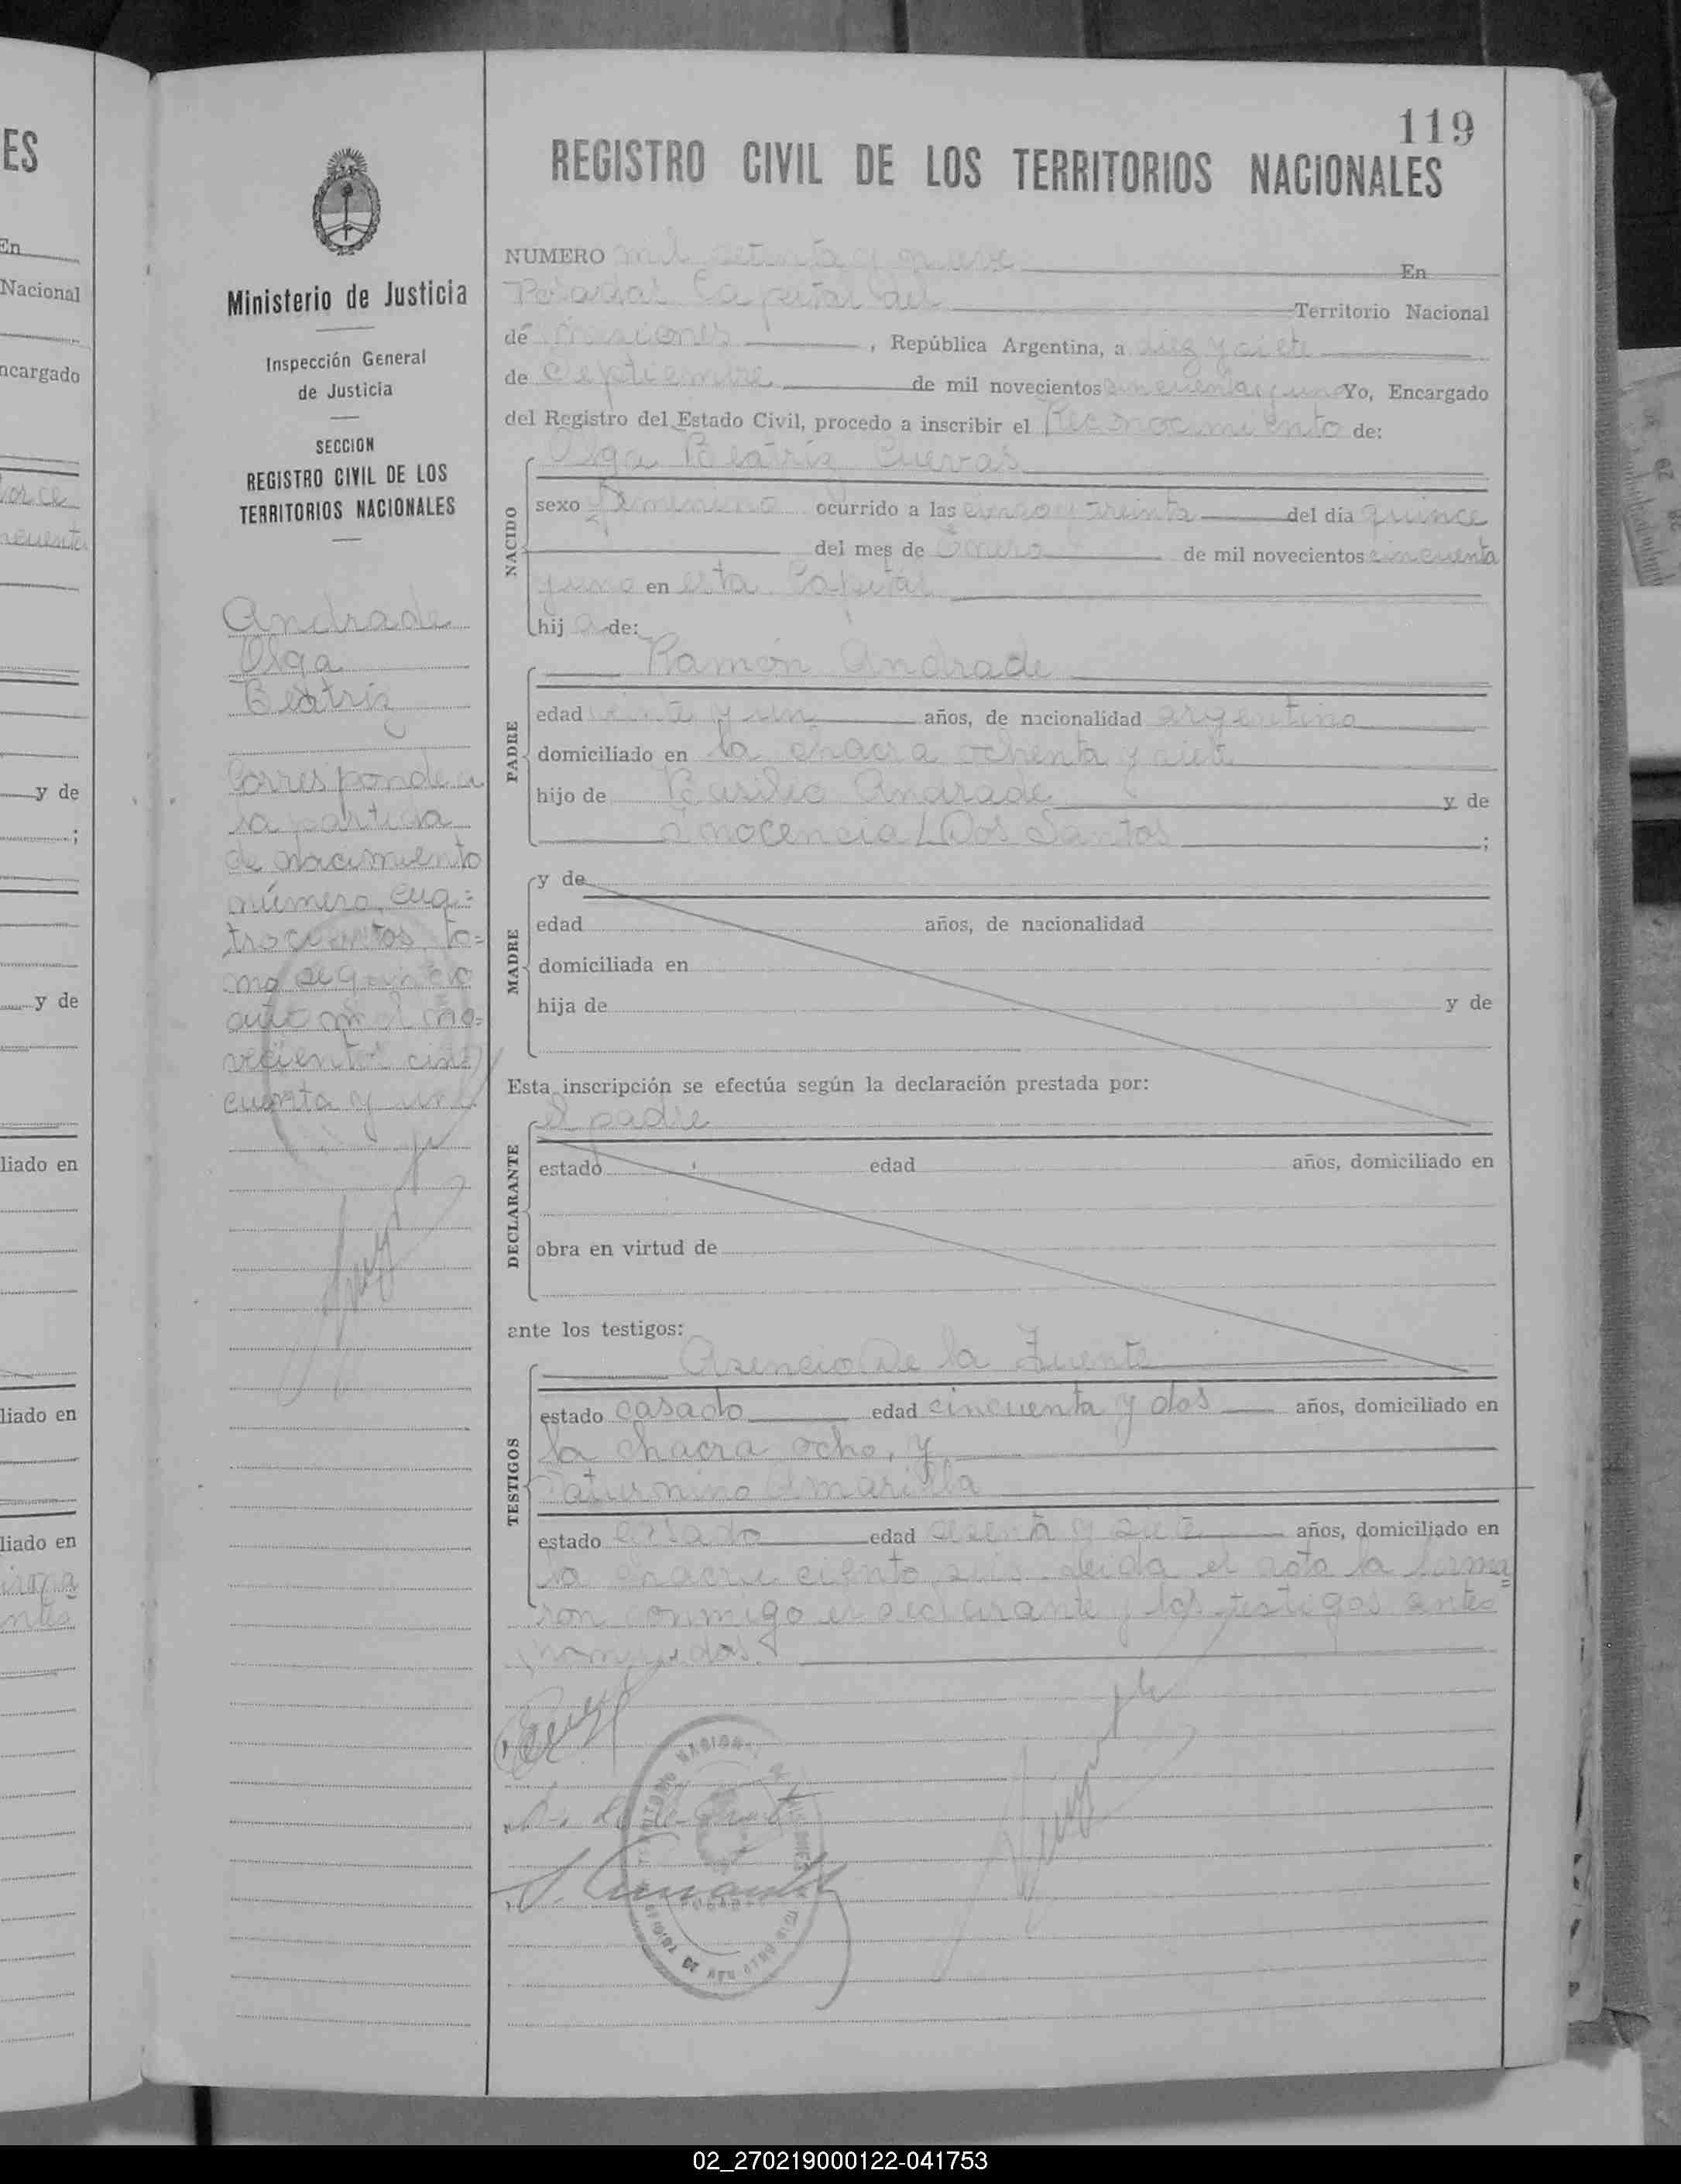 ES
En
Nacional
ncargado
y de
;
y de
liado en
liado en
liado en
119
Ministerio de Justicia
Inspección General
de Justicia
SECCION
REGISTRO CIVIL DE LOS
TERRITORIOS NACIONALES
Andrade
Olga
Beatriz
Corresponde a
la partida
de nacimiento
número cua=
trocientos to=
mo segundo
año mil no=
vecientos cin=
cuenta y uno
REGISTRO CIVIL DE LOS TERRITORIOS NACIONALES
NUMERO mil setenta y nueve En
Posadas Capital del Territorio Nacional
de Misiones, República Argentina, a diez y siete
de Septiembre de mil novecientos cincuenta y uno Yo, Encargado
del Registro del Estado Civil, procedo a inscribir el Reconocimiento de:
NACIDO
Olga Beatriz Cuevas
sexo femenino ocurrido a las cinco y treinta del día quince
del mes de Enero de mil novecientos cincuenta
y uno en esta Capital
hij a de:
PADRE
Ramón Andrade
edad veinte y un años, de nacionalidad argentina
domiciliado en la chacra ochenta y siete
hijo de Basilio Andrade y de
Inocencia Dos Santos ;
MADRE
y de
edad años, de nacionalidad
domiciliada en
hija de y de
Esta inscripción se efectúa según la declaración prestada por:
DECLARANTE
el padre
estado edad años, domiciliado en
obra en virtud de
ante los testigos:
TESTIGOS
Asencio De la Fuente
estado casado edad cincuenta y dos años, domiciliado en
la chacra ocho, y
Saturnino Amarilla
estado casado edad y siete años, domiciliado en
la chacra ciento seis. Leida el acta la firma=
ron conmigo el declarante y los testigos antes
nombrados.